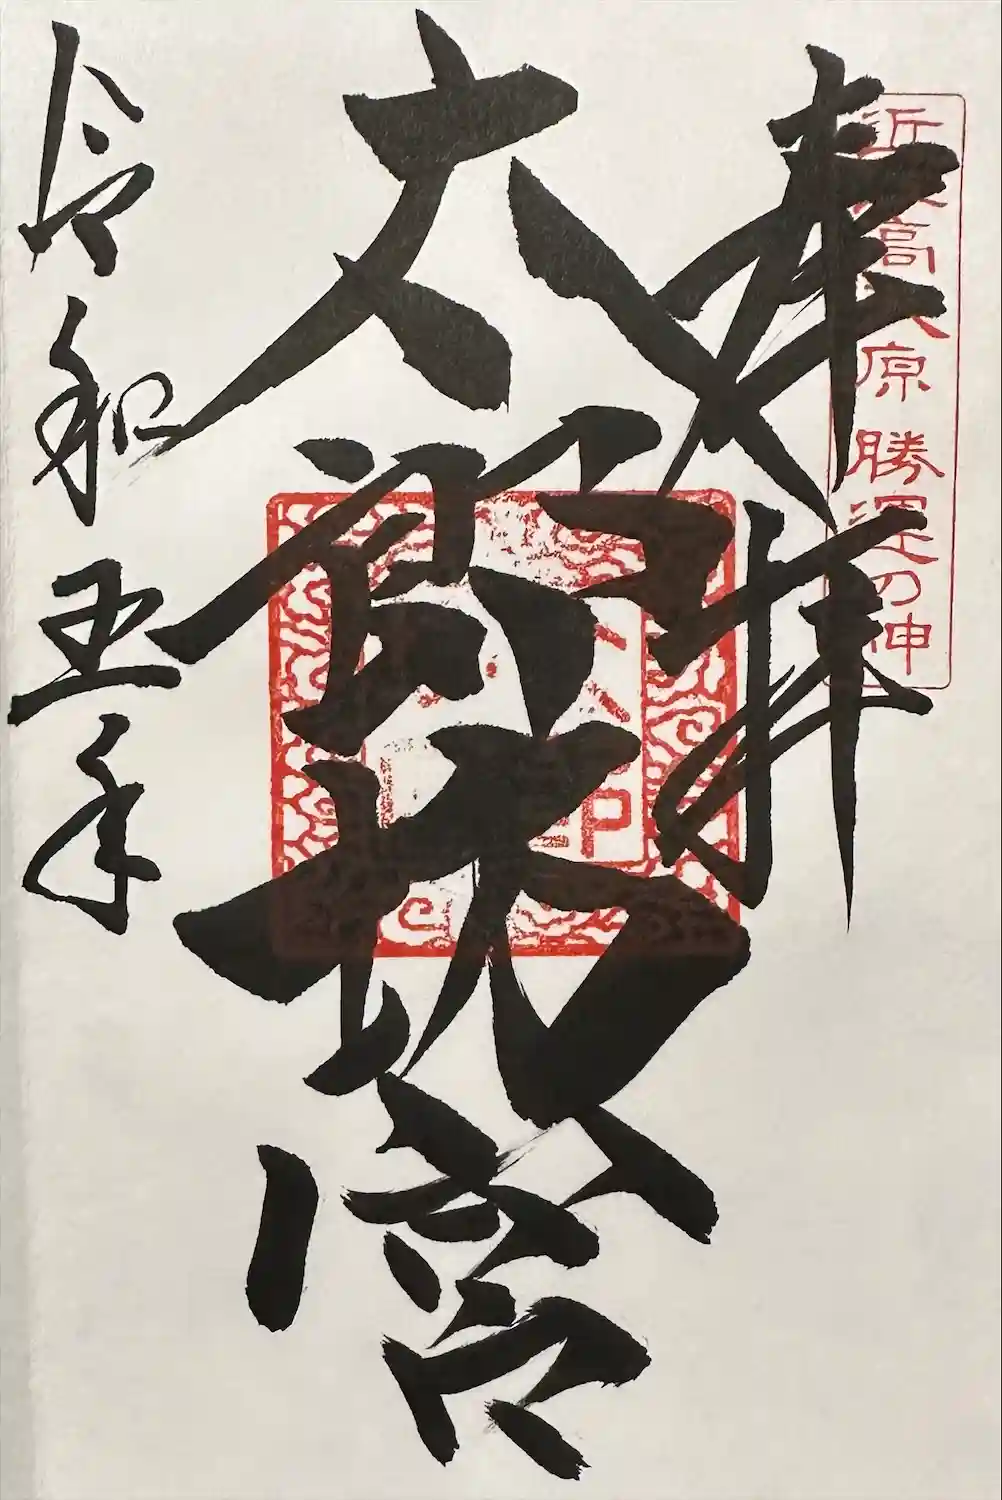 奉拝
近江高天原 勝運の神
太郎坊宮
令和五年